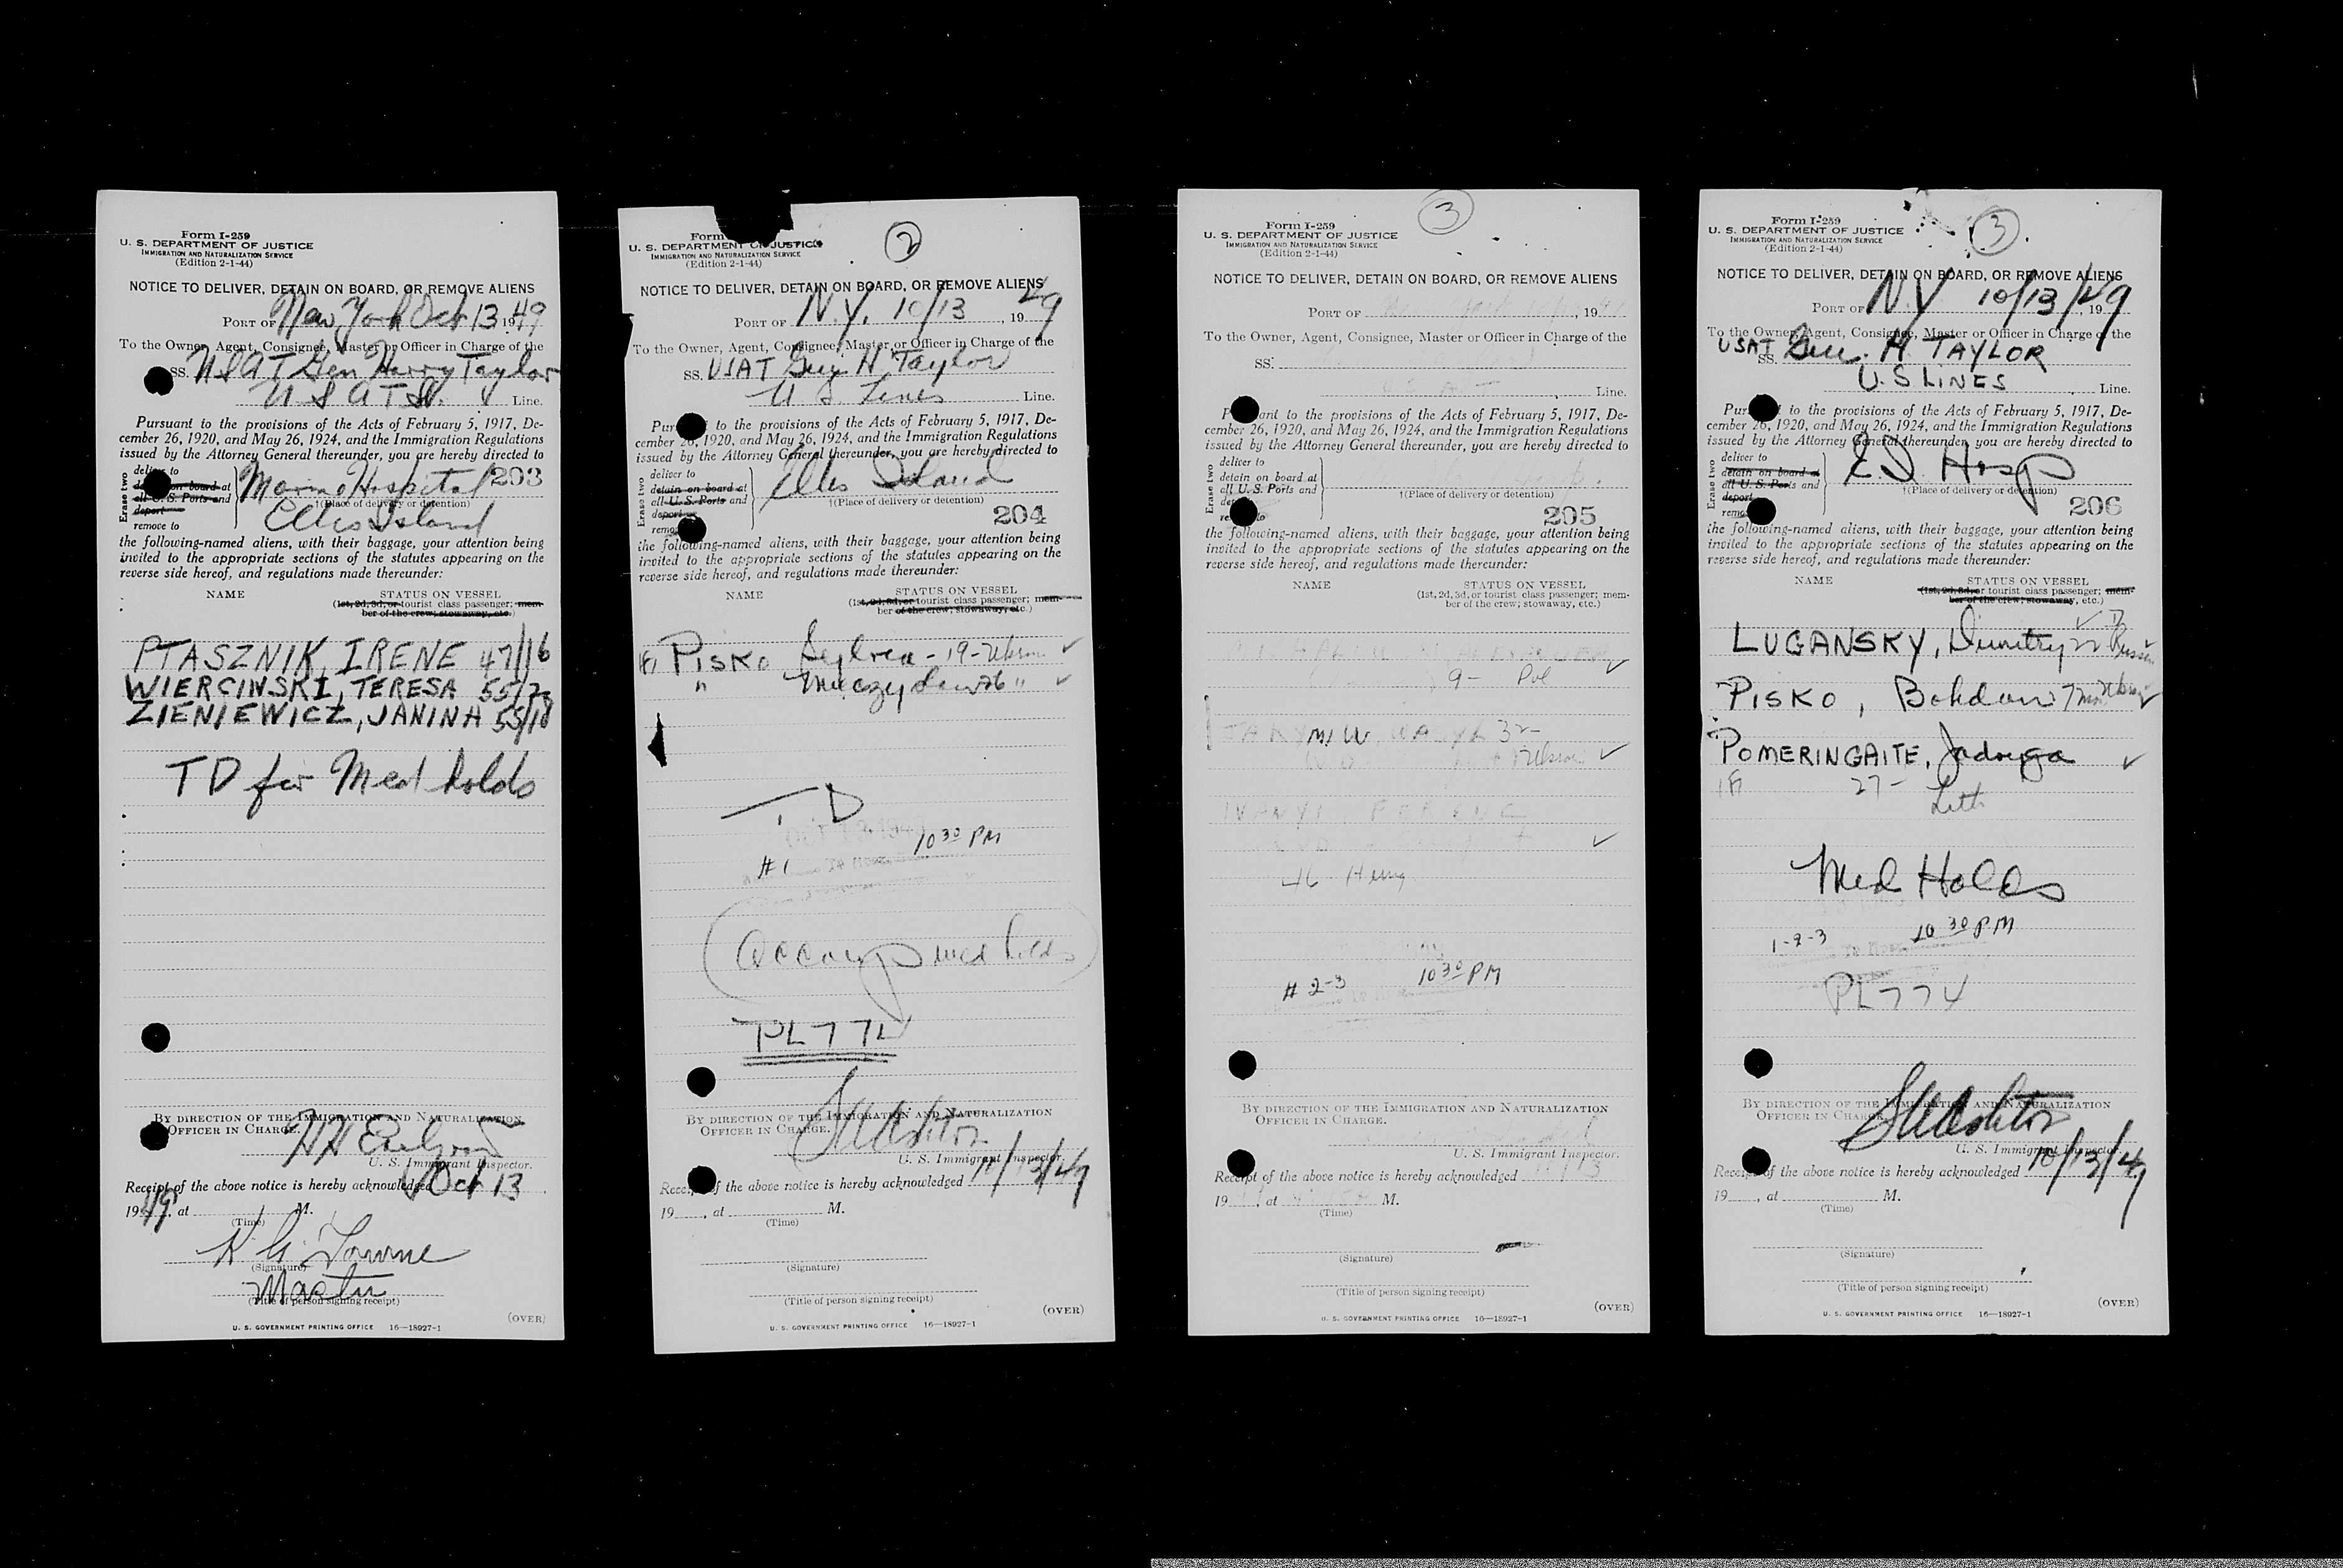 Form I-259
U. S. DEPARTMENT OF JUSTICE
IMMIGRATION AND NATURALIZATION SERVICE
(Edition 2-1-44)
NOTICE TO DELIVER, DETAIN ON BOARD, OR REMOVE ALIENS
PORT OF New York Oct 13 1949
To the Owner, Agent, Consignee, Master or Officer in Charge of the
SS. USAT Gen Harry Taylor
U S A T S. Line.
Pursuant to the provisions of the Acts of February 5, 1917, De-
cember 26, 1920, and May 26, 1924, and the Immigration Regulations
issued by the Attorney General thereunder, you are hereby directed to
Erase two
deliver to
on board at
all U. S. Ports and
deport
remove to
Marine Hospital 203
†(Place of delivery or detention)
Ellis Island
the following-named aliens, with their baggage, your attention being
invited to the appropriate sections of the statutes appearing on the
reverse side hereof, and regulations made thereunder:
NAME STATUS ON VESSEL
(1st, 2d, 3d, or tourist class passenger; mem-
ber of the crew; stowaway, etc.)
PTASZNIK, IRENE 47/16
WIERCINSKI, TERESA 55/
ZIENIEWICZ, JANINA 55/18
TD for Med holds
BY DIRECTION OF THE IMMIGRATION AND NATURALIZATION
OFFICER IN CHARGE.
U. S. Immigrant Inspector.
Receipt of the above notice is hereby acknowledged Oct 13
1949, at M.
(Time)
K. G. Towne
(Signature)
Master
(Title of person signing receipt)
(OVER)
U. S. GOVERNMENT PRINTING OFFICE 16—18927-1
2
Form
U. S. DEPARTMENT OF JUSTICE
IMMIGRATION AND NATURALIZATION SERVICE
(Edition 2-1-44)
NOTICE TO DELIVER, DETAIN ON BOARD, OR REMOVE ALIENS
PORT OF N.Y. 10/13, 1949
To the Owner, Agent, Consignee, Master or Officer in Charge of the
SS. USAT Gen H Taylor
U S Lines Line.
Pur to the provisions of the Acts of February 5, 1917, De-
cember 26, 1920, and May 26, 1924, and the Immigration Regulations
issued by the Attorney General thereunder, you are hereby directed to
Erase two
deliver to
detain on board at
all U. S. Ports and
deport
remo
Ellis Island
†(Place of delivery or detention)
204
the following-named aliens, with their baggage, your attention being
invited to the appropriate sections of the statutes appearing on the
reverse side hereof, and regulations made thereunder:
NAME STATUS ON VESSEL
(1st, 2d, 3d, or tourist class passenger; mem-
ber of the crew; stowaway, etc.)
PISKO - 19 -
" 26 "
TD
10 30 PM
#1
Accomp med holds
PL 774
BY DIRECTION OF THE IMMIGRATION AND NATURALIZATION
OFFICER IN CHARGE.
U. S. Immigrant Inspector.
Rece f the above notice is hereby acknowledged 10/13/49
19 , at M.
(Time)
(Signature)
(Title of person signing receipt)
(OVER)
U. S. GOVERNMENT PRINTING OFFICE 16—18927-1
3
Form I-259
U. S. DEPARTMENT OF JUSTICE
IMMIGRATION AND NATURALIZATION SERVICE
(Edition 2-1-44)
NOTICE TO DELIVER, DETAIN ON BOARD, OR REMOVE ALIENS
PORT OF , 19
To the Owner, Agent, Consignee, Master or Officer in Charge of the
SS.
Line.
P ant to the provisions of the Acts of February 5, 1917, De-
cember 26, 1920, and May 26, 1924, and the Immigration Regulations
issued by the Attorney General thereunder, you are hereby directed to
Erase two
deliver to
detain on board at
all U. S. Ports and
de
re to
†(Place of delivery or detention)
205
the following-named aliens, with their baggage, your attention being
invited to the appropriate sections of the statutes appearing on the
reverse side hereof, and regulations made thereunder:
NAME STATUS ON VESSEL
(1st, 2d, 3d, or tourist class passenger; mem-
ber of the crew; stowaway, etc.)
9- Pol
32-
IVANYI, FERENC
46 Hung
# 2-3 10 30 PM
BY DIRECTION OF THE IMMIGRATION AND NATURALIZATION
OFFICER IN CHARGE.
U. S. Immigrant Inspector.
Receipt of the above notice is hereby acknowledged
19 , at M.
(Time)
(Signature)
(Title of person signing receipt)
(OVER)
U. S. GOVERNMENT PRINTING OFFICE 16—18927-1
3
Form I-259
U. S. DEPARTMENT OF JUSTICE
IMMIGRATION AND NATURALIZATION SERVICE
(Edition 2-1-44)
NOTICE TO DELIVER, DETAIN ON BOARD, OR REMOVE ALIENS
PORT OF N.Y 10/13/49, 19
To the Owner, Agent, Consignee, Master or Officer in Charge of the
SS. USAT Gen. H TAYLOR
U.S LINES Line.
Pur to the provisions of the Acts of February 5, 1917, De-
cember 26, 1920, and May 26, 1924, and the Immigration Regulations
issued by the Attorney General thereunder, you are hereby directed to
Erase two
deliver to
detain on board at
all U. S. Ports and
deport
remo
E.I. Hosp
†(Place of delivery or detention)
206
the following-named aliens, with their baggage, your attention being
invited to the appropriate sections of the statutes appearing on the
reverse side hereof, and regulations made thereunder:
NAME STATUS ON VESSEL
(1st, 2d, 3d, or tourist class passenger; mem-
ber of the crew; stowaway, etc.)
LUGANSKY, Dimitry 22 Russian
PISKO, Bohdan 7 mos
POMERINGAITE, Jadvyga
27- Lith
Med Holds
1-2-3 10 30 PM
PL774
BY DIRECTION OF THE IMMIGRATION AND NATURALIZATION
OFFICER IN CHARGE.
U. S. Immigrant Inspector.
Receip of the above notice is hereby acknowledged 10/13/49
19 , at M.
(Time)
(Signature)
(Title of person signing receipt)
(OVER)
U. S. GOVERNMENT PRINTING OFFICE 16—18927-1